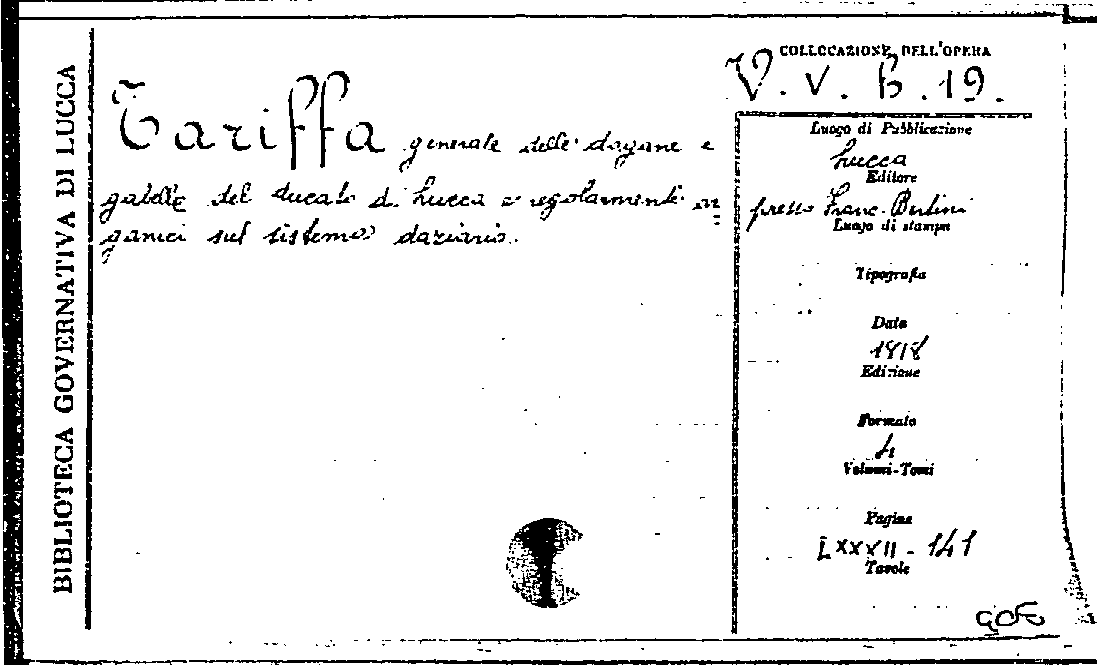 BIBLIOTECA GOVERNATIVA DI LUCCA
Tariffa generale delle dogane e
gabelle del ducato di Lucca e regolamenti or
ganici sul sistema daziario.
COLLOCAZIONE DELL'OPERA
V. V. b. 19.
Luogo di Pubblicazione
Lucca
Editore
presso Franc. Bertini
Luogo di stampa
Tipografia
Data
1818
Edizione
Formato
Volumi-Tomi
Pagine
LXXXII - 141
Tavole